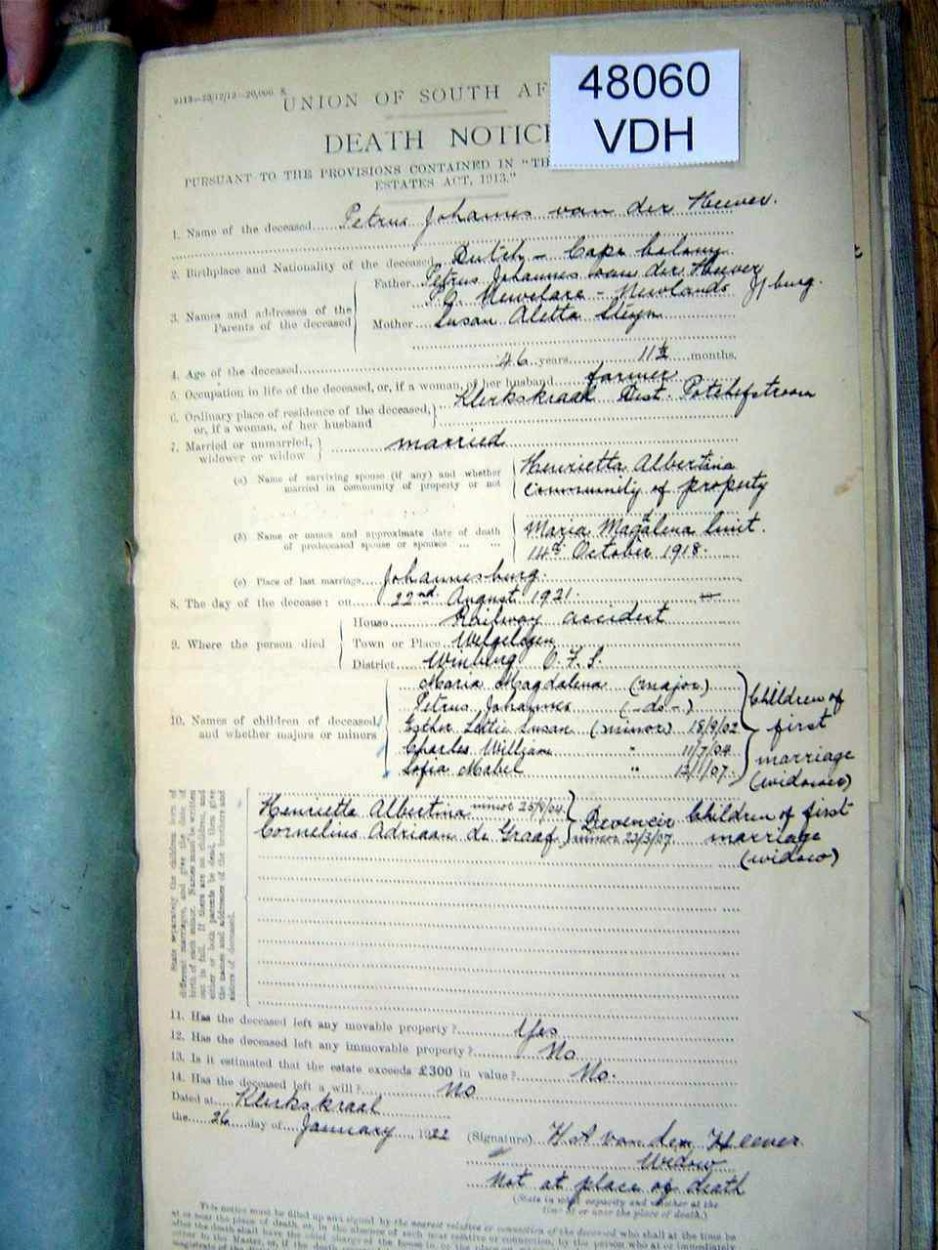 2113—23/12/13—20,000. S.
48060
VDH
UNION OF SOUTH AF
DEATH NOTIC
PURSUANT TO THE PROVISIONS CONTAINED IN "TH
ESTATES ACT, 1913."
1. Name of the deceased Petrus Johannes van der Heever.
2. Birthplace and Nationality of the deceased Dutch – Cape Colony
3. Names and addresses of the Parents of the deceased
Father Petrus Johannes van der Heever
Newclare – Newlands J/burg.
Mother Susan Aletta Steyn
4. Age of the deceased 46 years 11½ months.
5. Occupation in life of the deceased, or, if a woman, of her husband farmer
6. Ordinary place of residence of the deceased, or, if a woman, of her husband Klerkskraal Dist. Potchefstroom
7. Married or unmarried, widower or widow married
(a) Name of surviving spouse (if any) and whether married in community of property or not
Henrietta Albertina
community of property
(b) Name or names and approximate date of death of predeceased spouse or spouses
Maria Magdalena
14th October 1918.
(c) Place of last marriage Johannesburg.
8. The day of the decease: on 22nd August 1921.
9. Where the person died
House Railway accident
Town or Place Welgelegen
District Winburg O.F.S.
10. Names of children of deceased, and whether majors or minors
Maria Magdalena (major)
Petrus Johannes (–do–)
Esther Susan (minor) 18/9/02
Charles William " 11/7/04
Sofia Mabel " 12/1/07.
Children of first marriage (widower)
Henrietta Albertina minor
Cornelius Adriaan de Graaf minor 23/3/07.
Children of first marriage (widow)
State separately the children born of
different marriages, and give the date of
birth of each minor. Names must be written
out in full. If there are no children, and
either or both parents be dead, then give
the names and addresses of the brothers and
sisters of deceased.
11. Has the deceased left any movable property? Yes
12. Has the deceased left any immovable property? No
13. Is it estimated that the estate exceeds £300 in value? No.
14. Has the deceased left a will? No
Dated at Klerkskraal
the 26 day of January 1922
(Signature) H A van den Heever
Widow
Not at place of death
(State in what capacity and whether at the
time at or near the place of death.)
This notice must be filled up and signed by the nearest relative or connection of the deceased who shall at the time be
at or near the place of death, or, in the absence of such near relative or connection, by the person who at or immediately
after the death shall have the chief charge of the house in, or the place on,